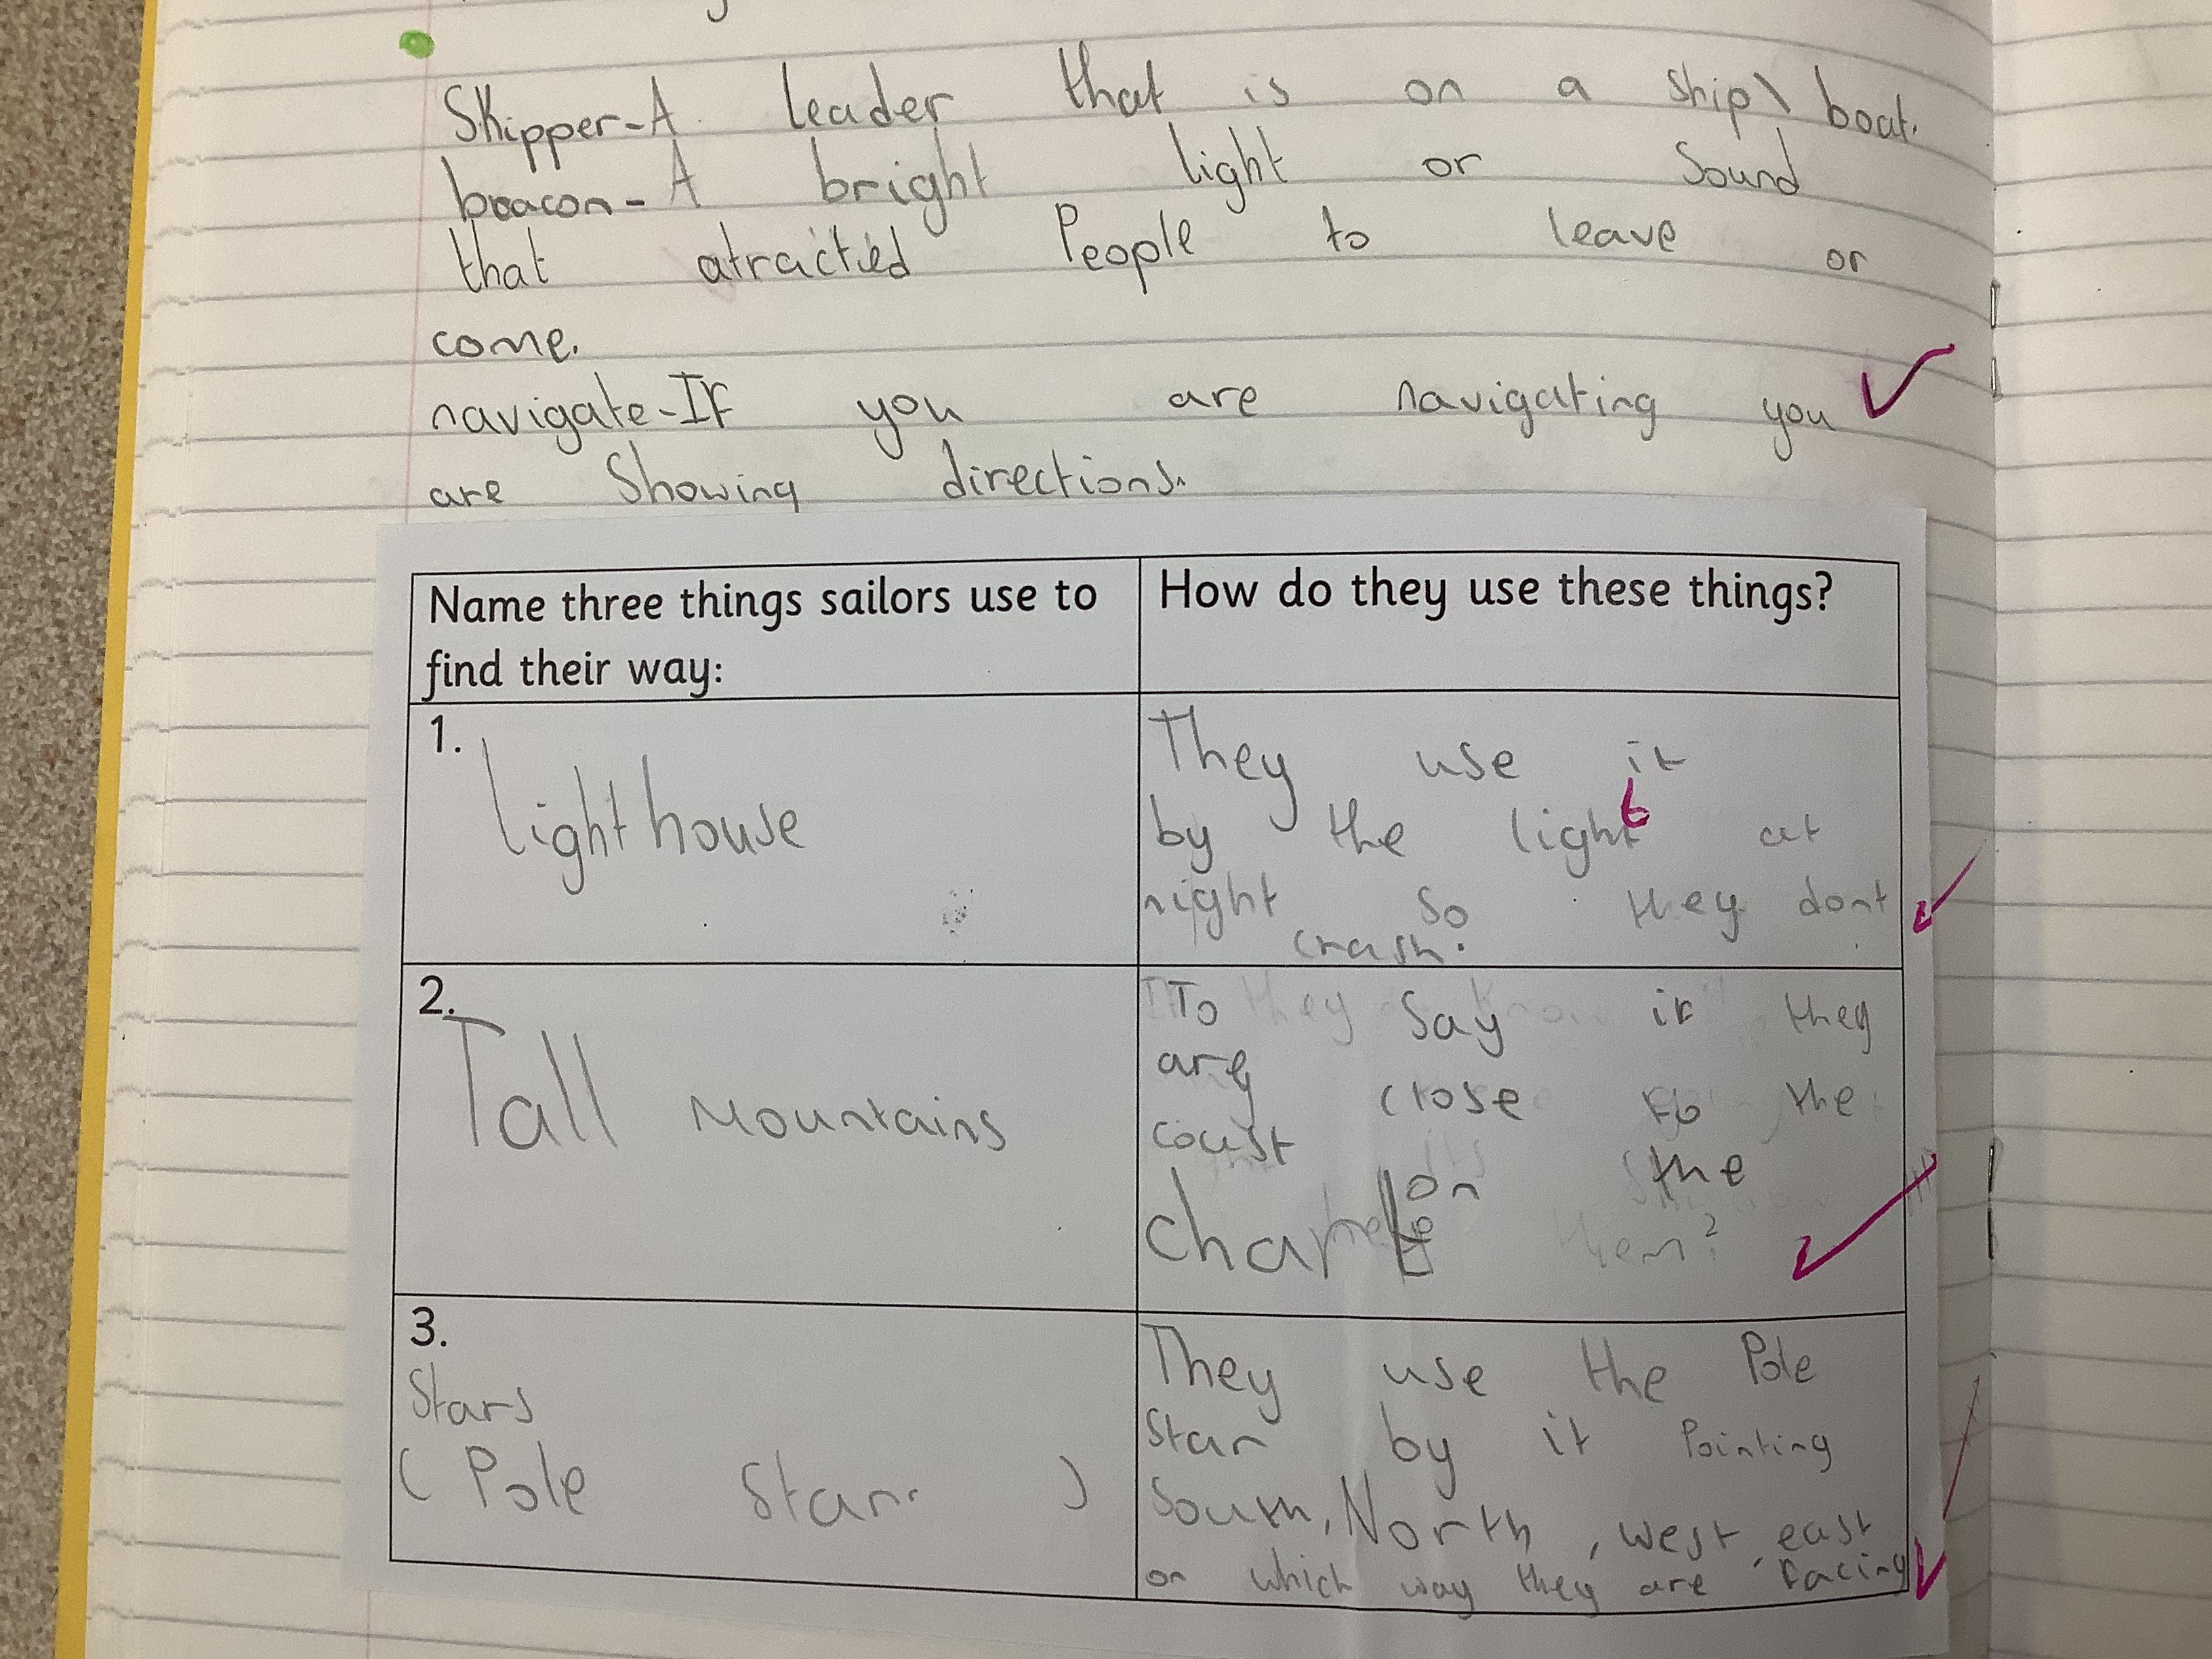 Skipper-A leader that is on a ship\ boat.
beacon-A bright light or Sound
that atractied People to leave or
come.
navigate-If you are navigating you
are Showing directions.
Name three things sailors use to
find their way:
How do they use these things?
1.
lighthouse
They use it
by the light at
night so they dont
crash.
2.
Tall Mountains
To Say if they
are close to the
coast
on the
chart
3.
Stars
(Pole Star.)
They use the Pole
Star by it Pointing
South, North, west, east
on which way they are facing